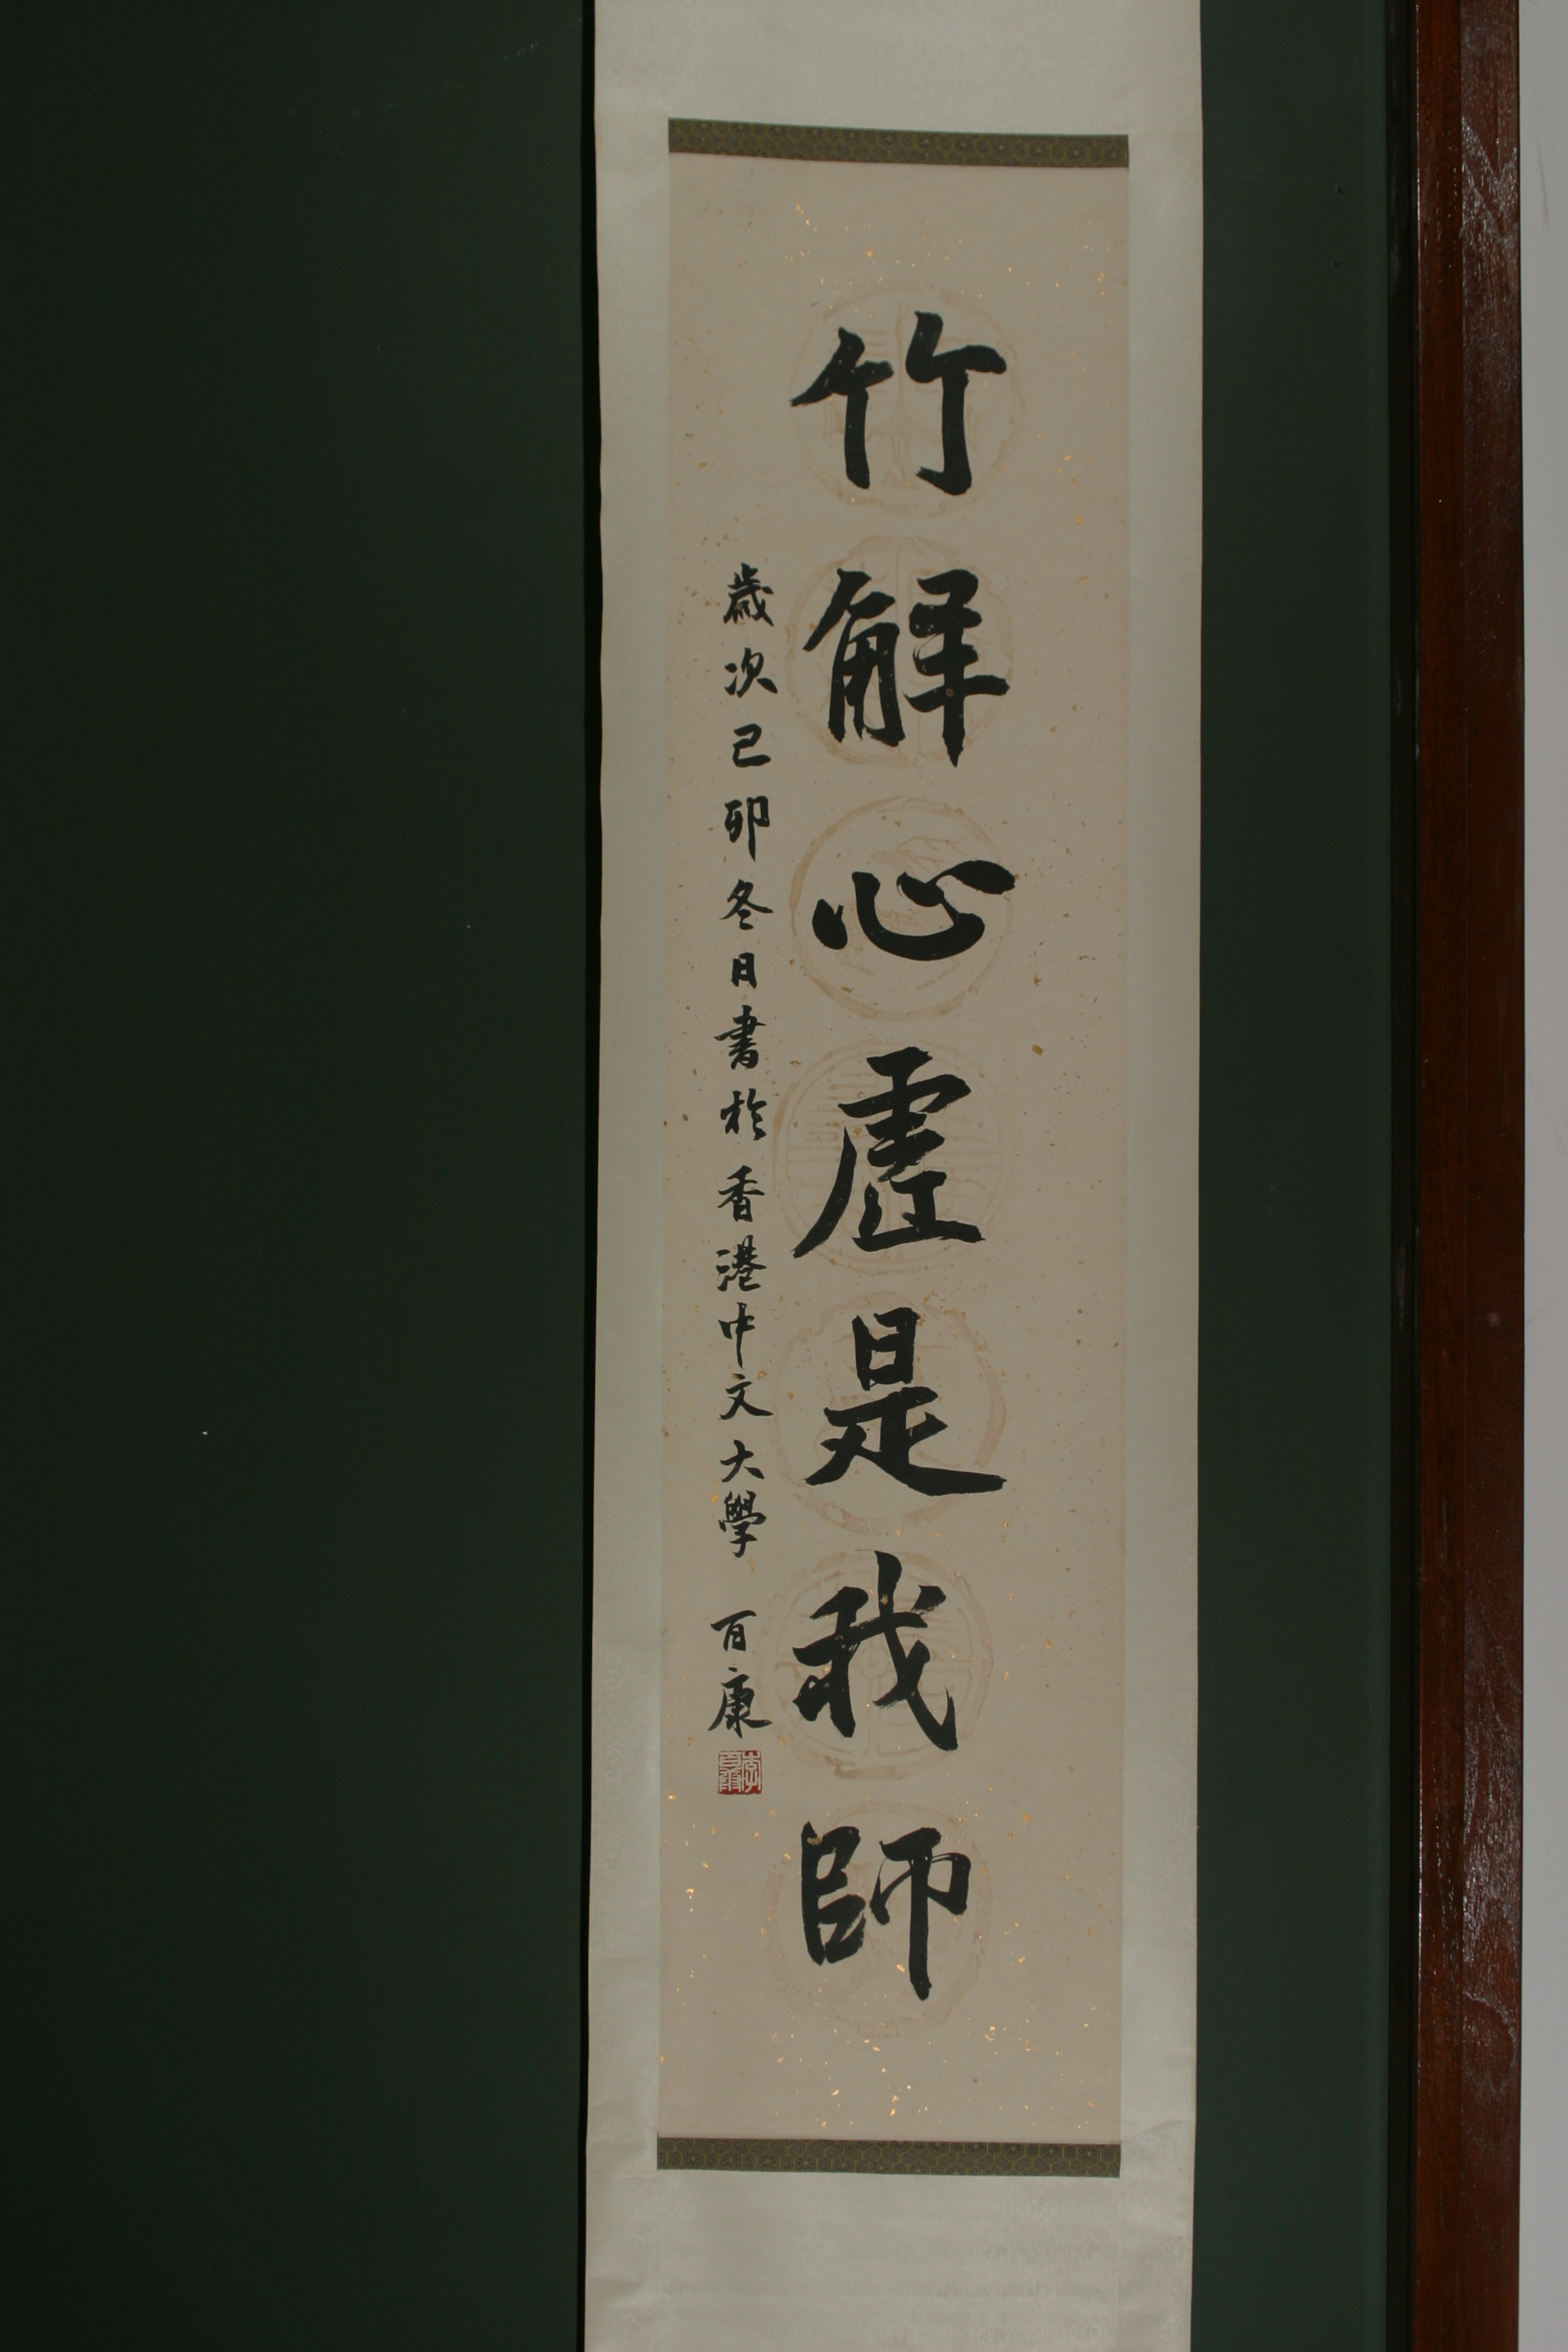 竹解心虛是我師
歲次己卯冬日書於香港中文大學 百康